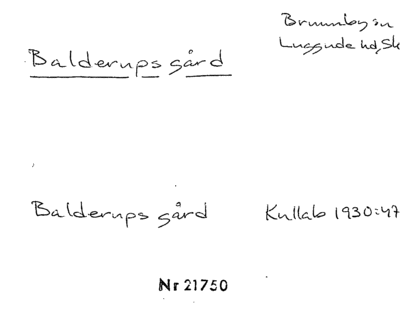 Brunnby sn
Luggude hd, Sk
Balderups gård
Balderups gård Kullab 1930:47
Nr 21750